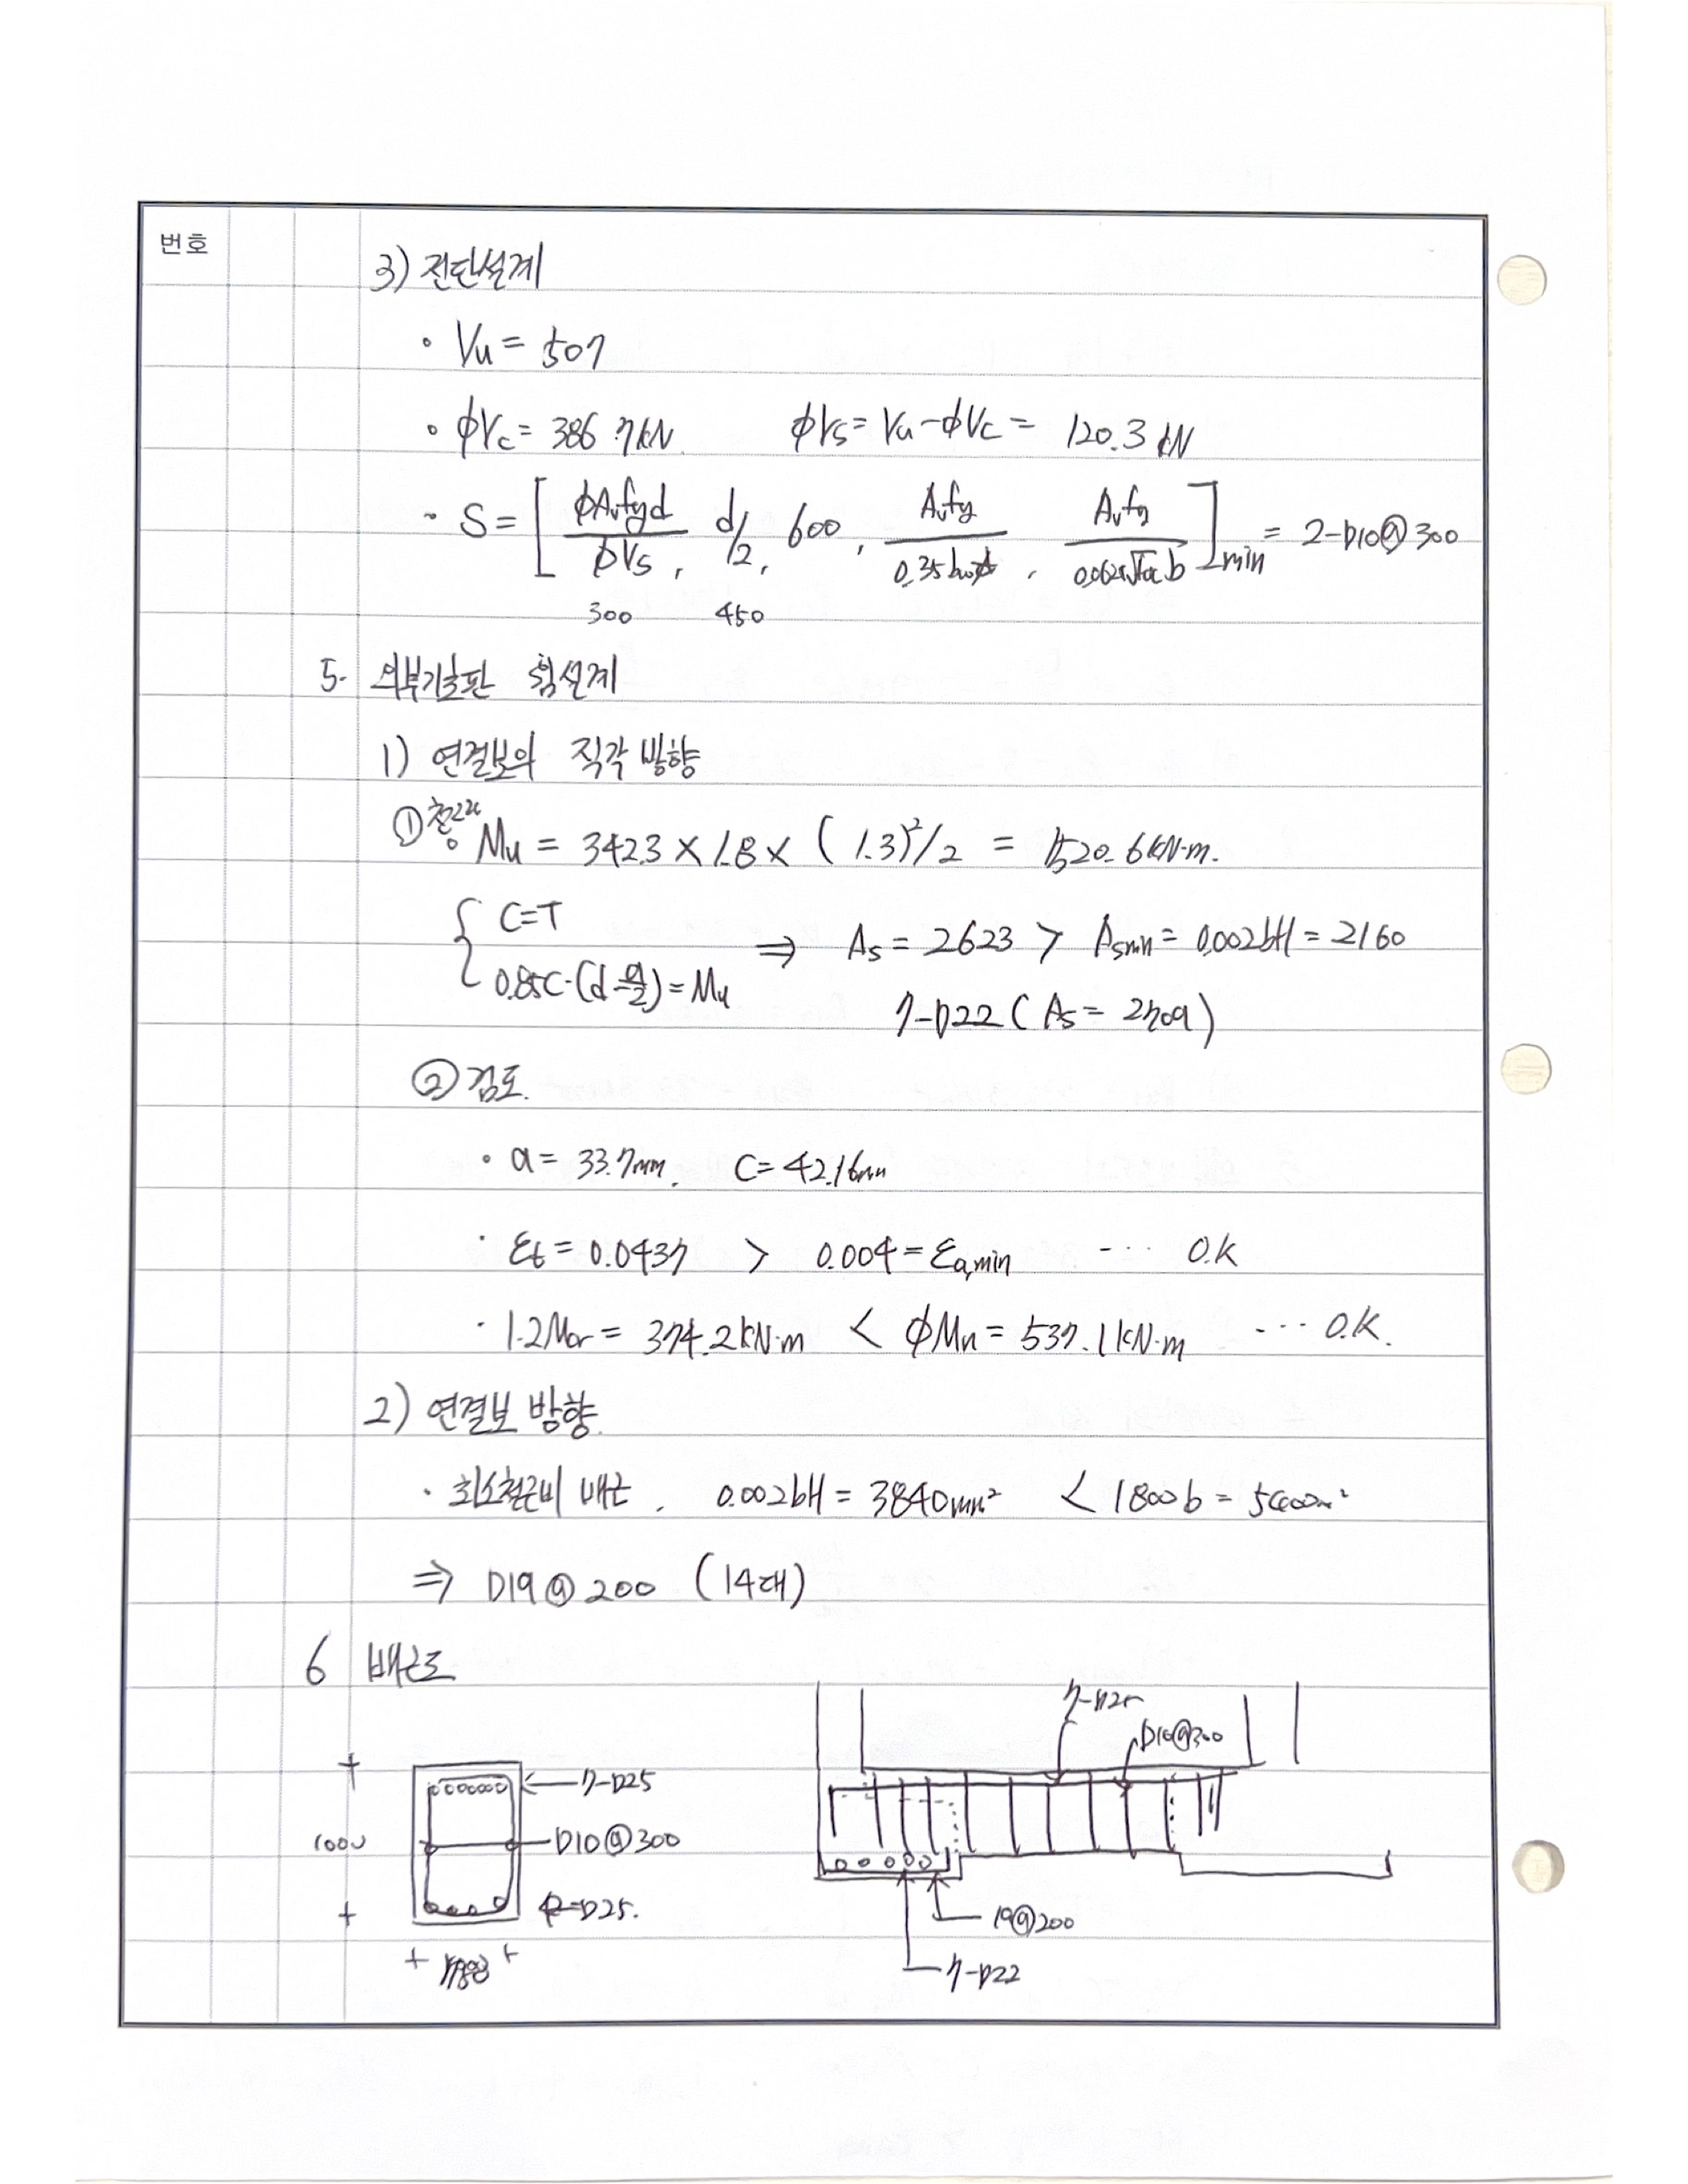 번호
3) 전단설계
• Vu = 507
• φVc = 386.7kN. φVs = Vu-φVc = 120.3 kN
• S = [ φAvfyd/φVs, d/2, 600, Avfy/0.35bw, Avfy/0.0625√fck b ]min = 2-D10@300
300 450
5. 외부기초판 휨설계
1) 연결보의 직각 방향
① 철근량
Mu = 342.3 × 1.8 × (1.3)²/2 = 520.6kN·m.
{ C=T
0.85C·(d-a/2) = Mu ⇒ As = 2623 > Asmin = 0.002bH = 2160
7-D22 ( As = 2709 )
② 검토.
• a = 33.7mm. C = 42.16mm
• εt = 0.0437 > 0.004 = εa,min --- O.K
• 1.2Mcr = 374.2kN·m < φMn = 537.1kN·m --- O.K.
2) 연결보 방향.
• 최소철근비 배근. 0.002bH = 3840mm² < 1800b =
⇒ D19@200 (14대)
6 배근도
7-D25
D10@300
7-D25
1000
D10@300
-D25.
19@200
7-D22